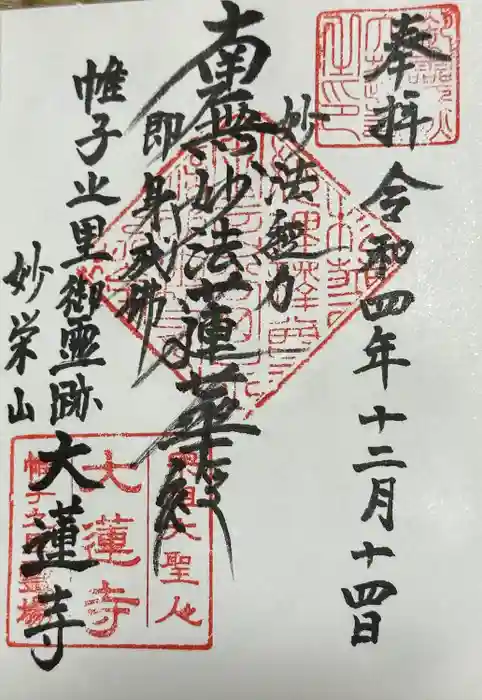 奉拝 令和四年十二月十四日
妙法経力
南無妙法蓮華経
即身成佛
帷子之里御霊跡
妙栄山 大蓮寺
大聖人
大蓮寺